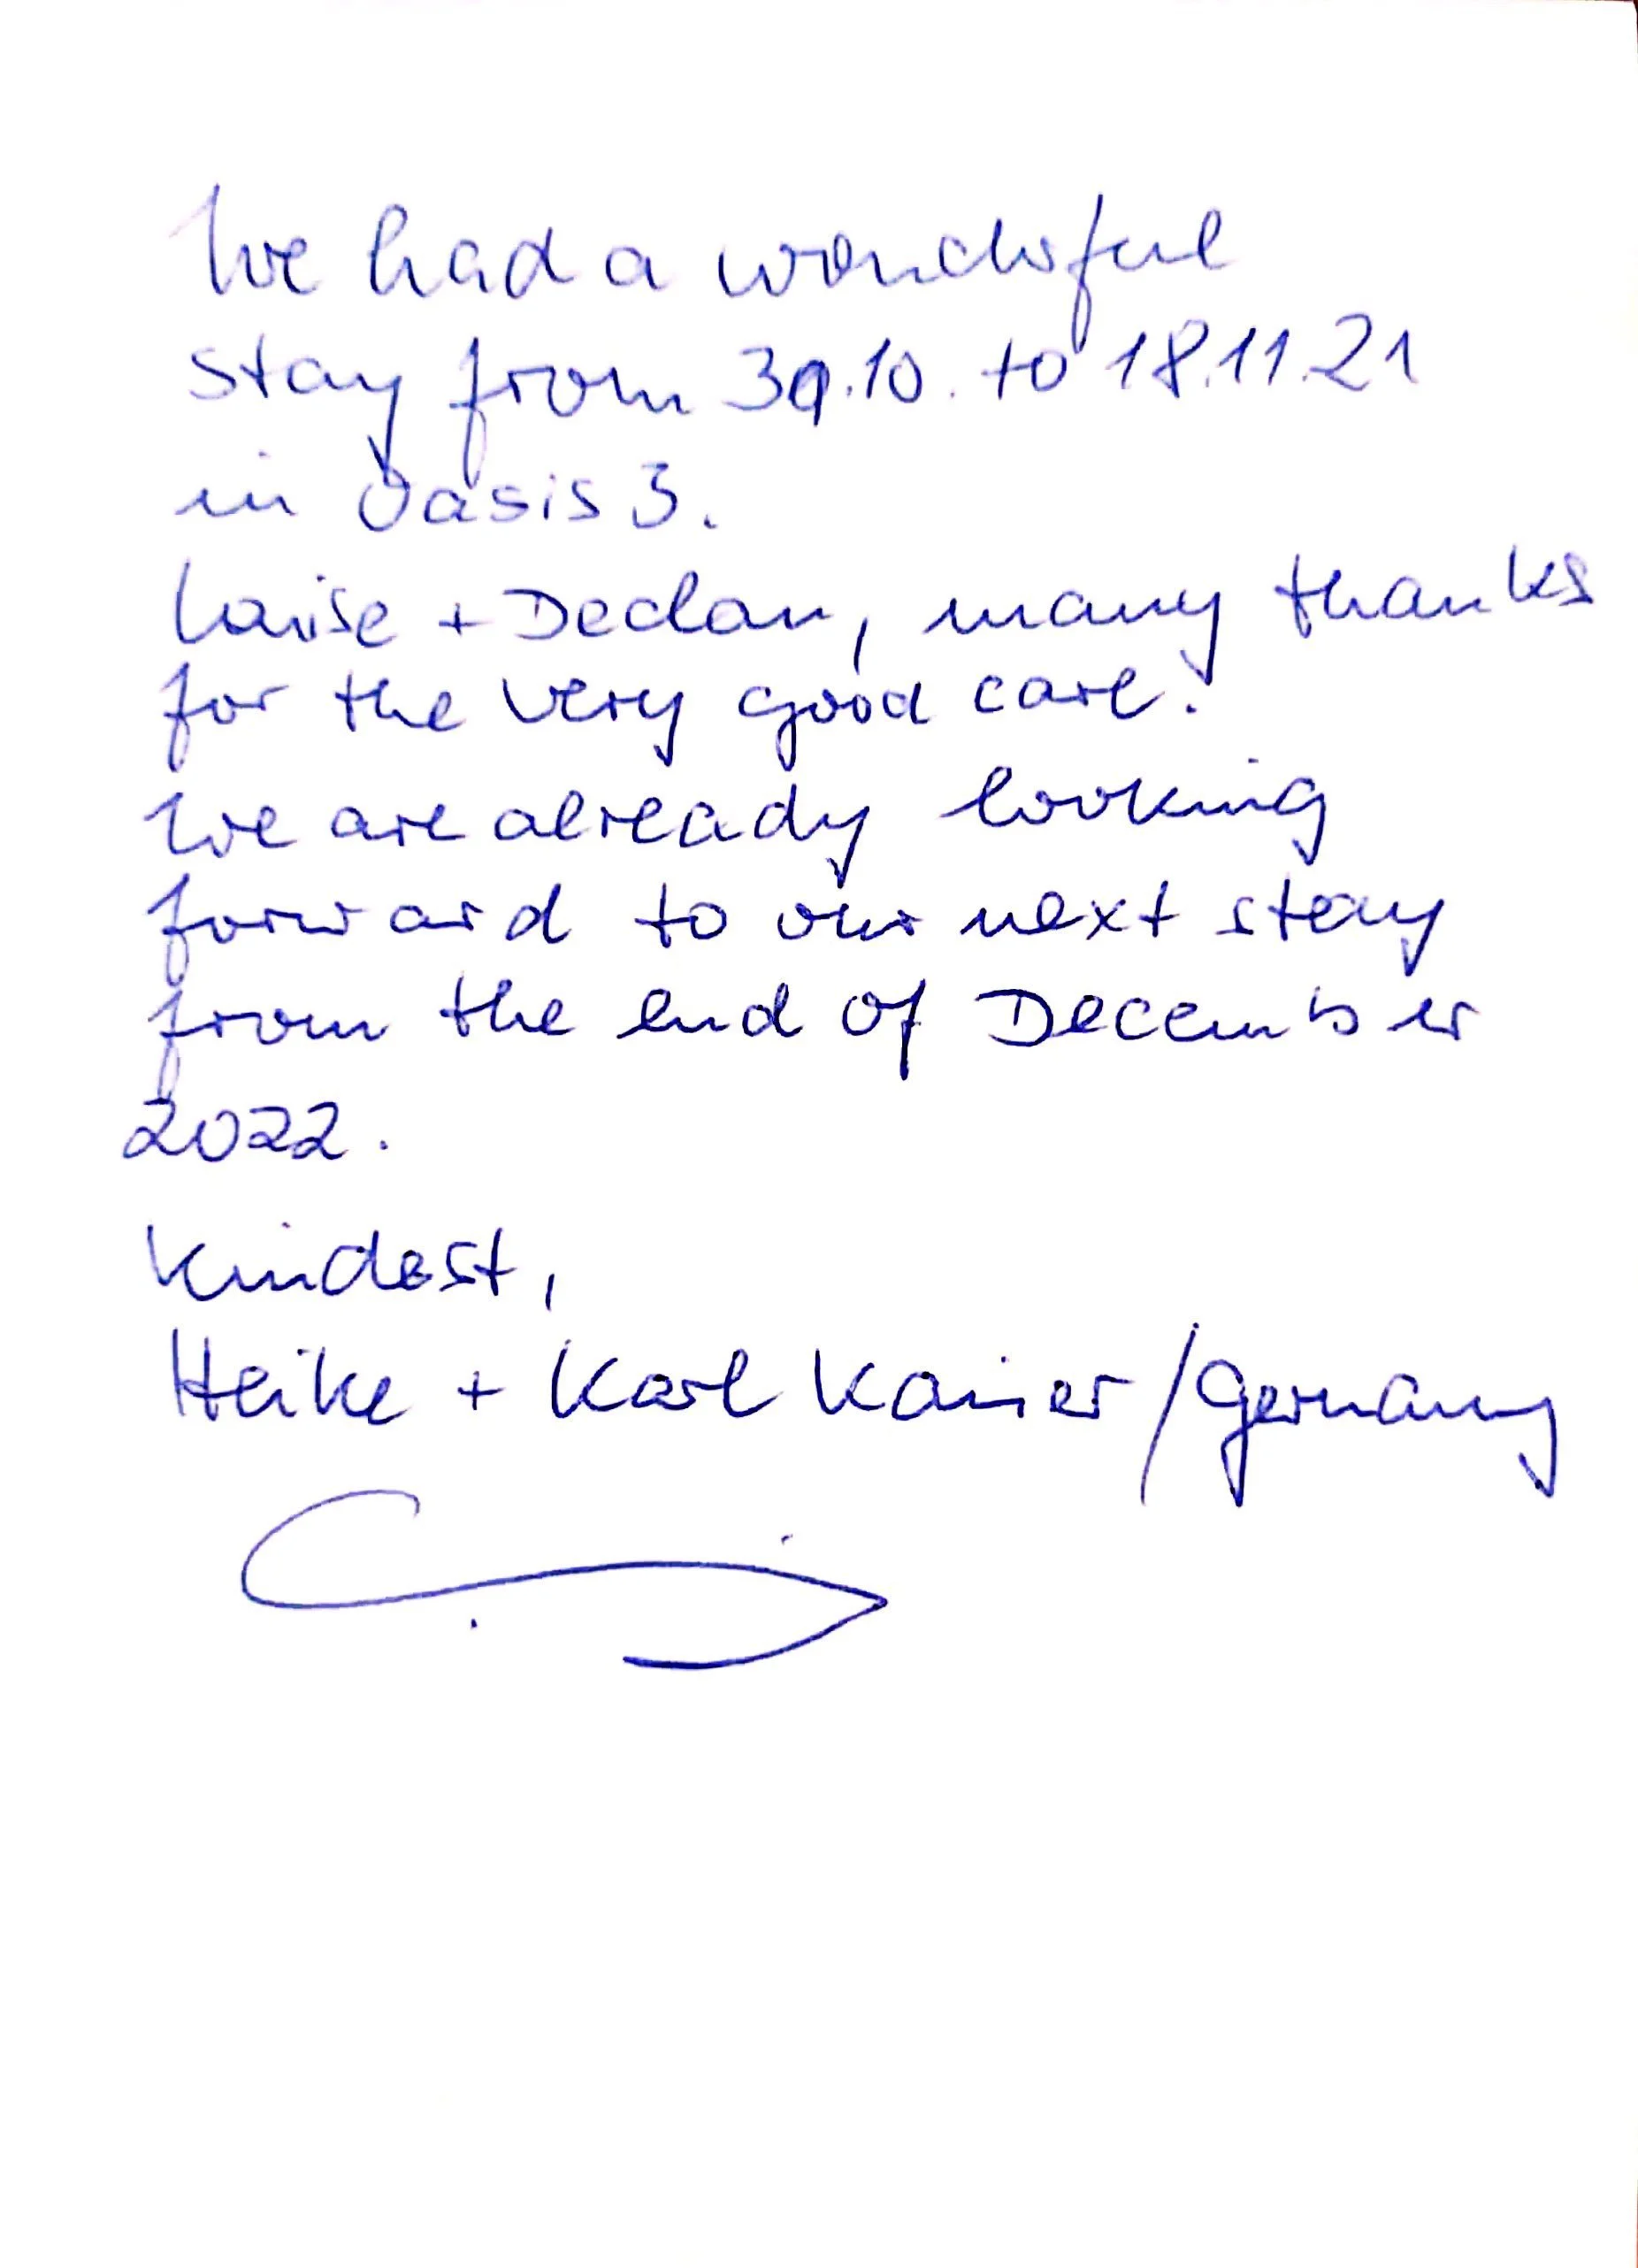 We had a wonderful
stay from 30.10. to 18.11.21
in Oasis 3.
Louise + Declan, many thanks
for the very good care.
We are already looking
forward to our next stay
from the end of December
2022.
Kindest,
Heike + Karl /Germany